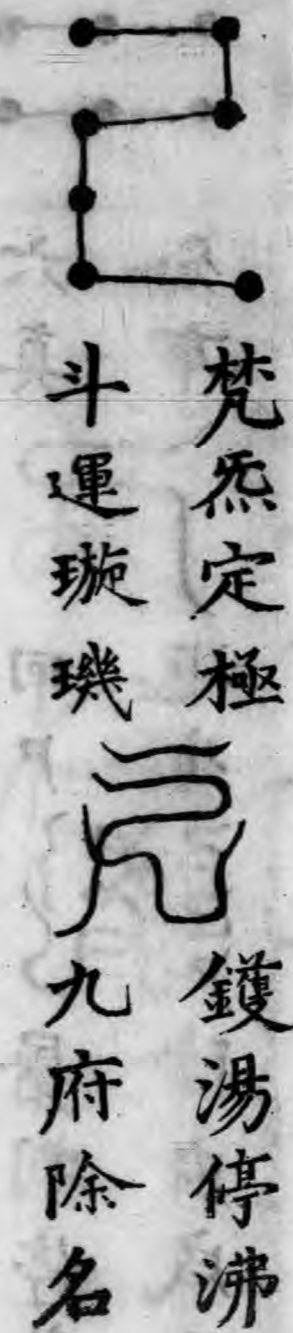 梵炁定極
斗運璇璣
鑊湯停沸
九府除名